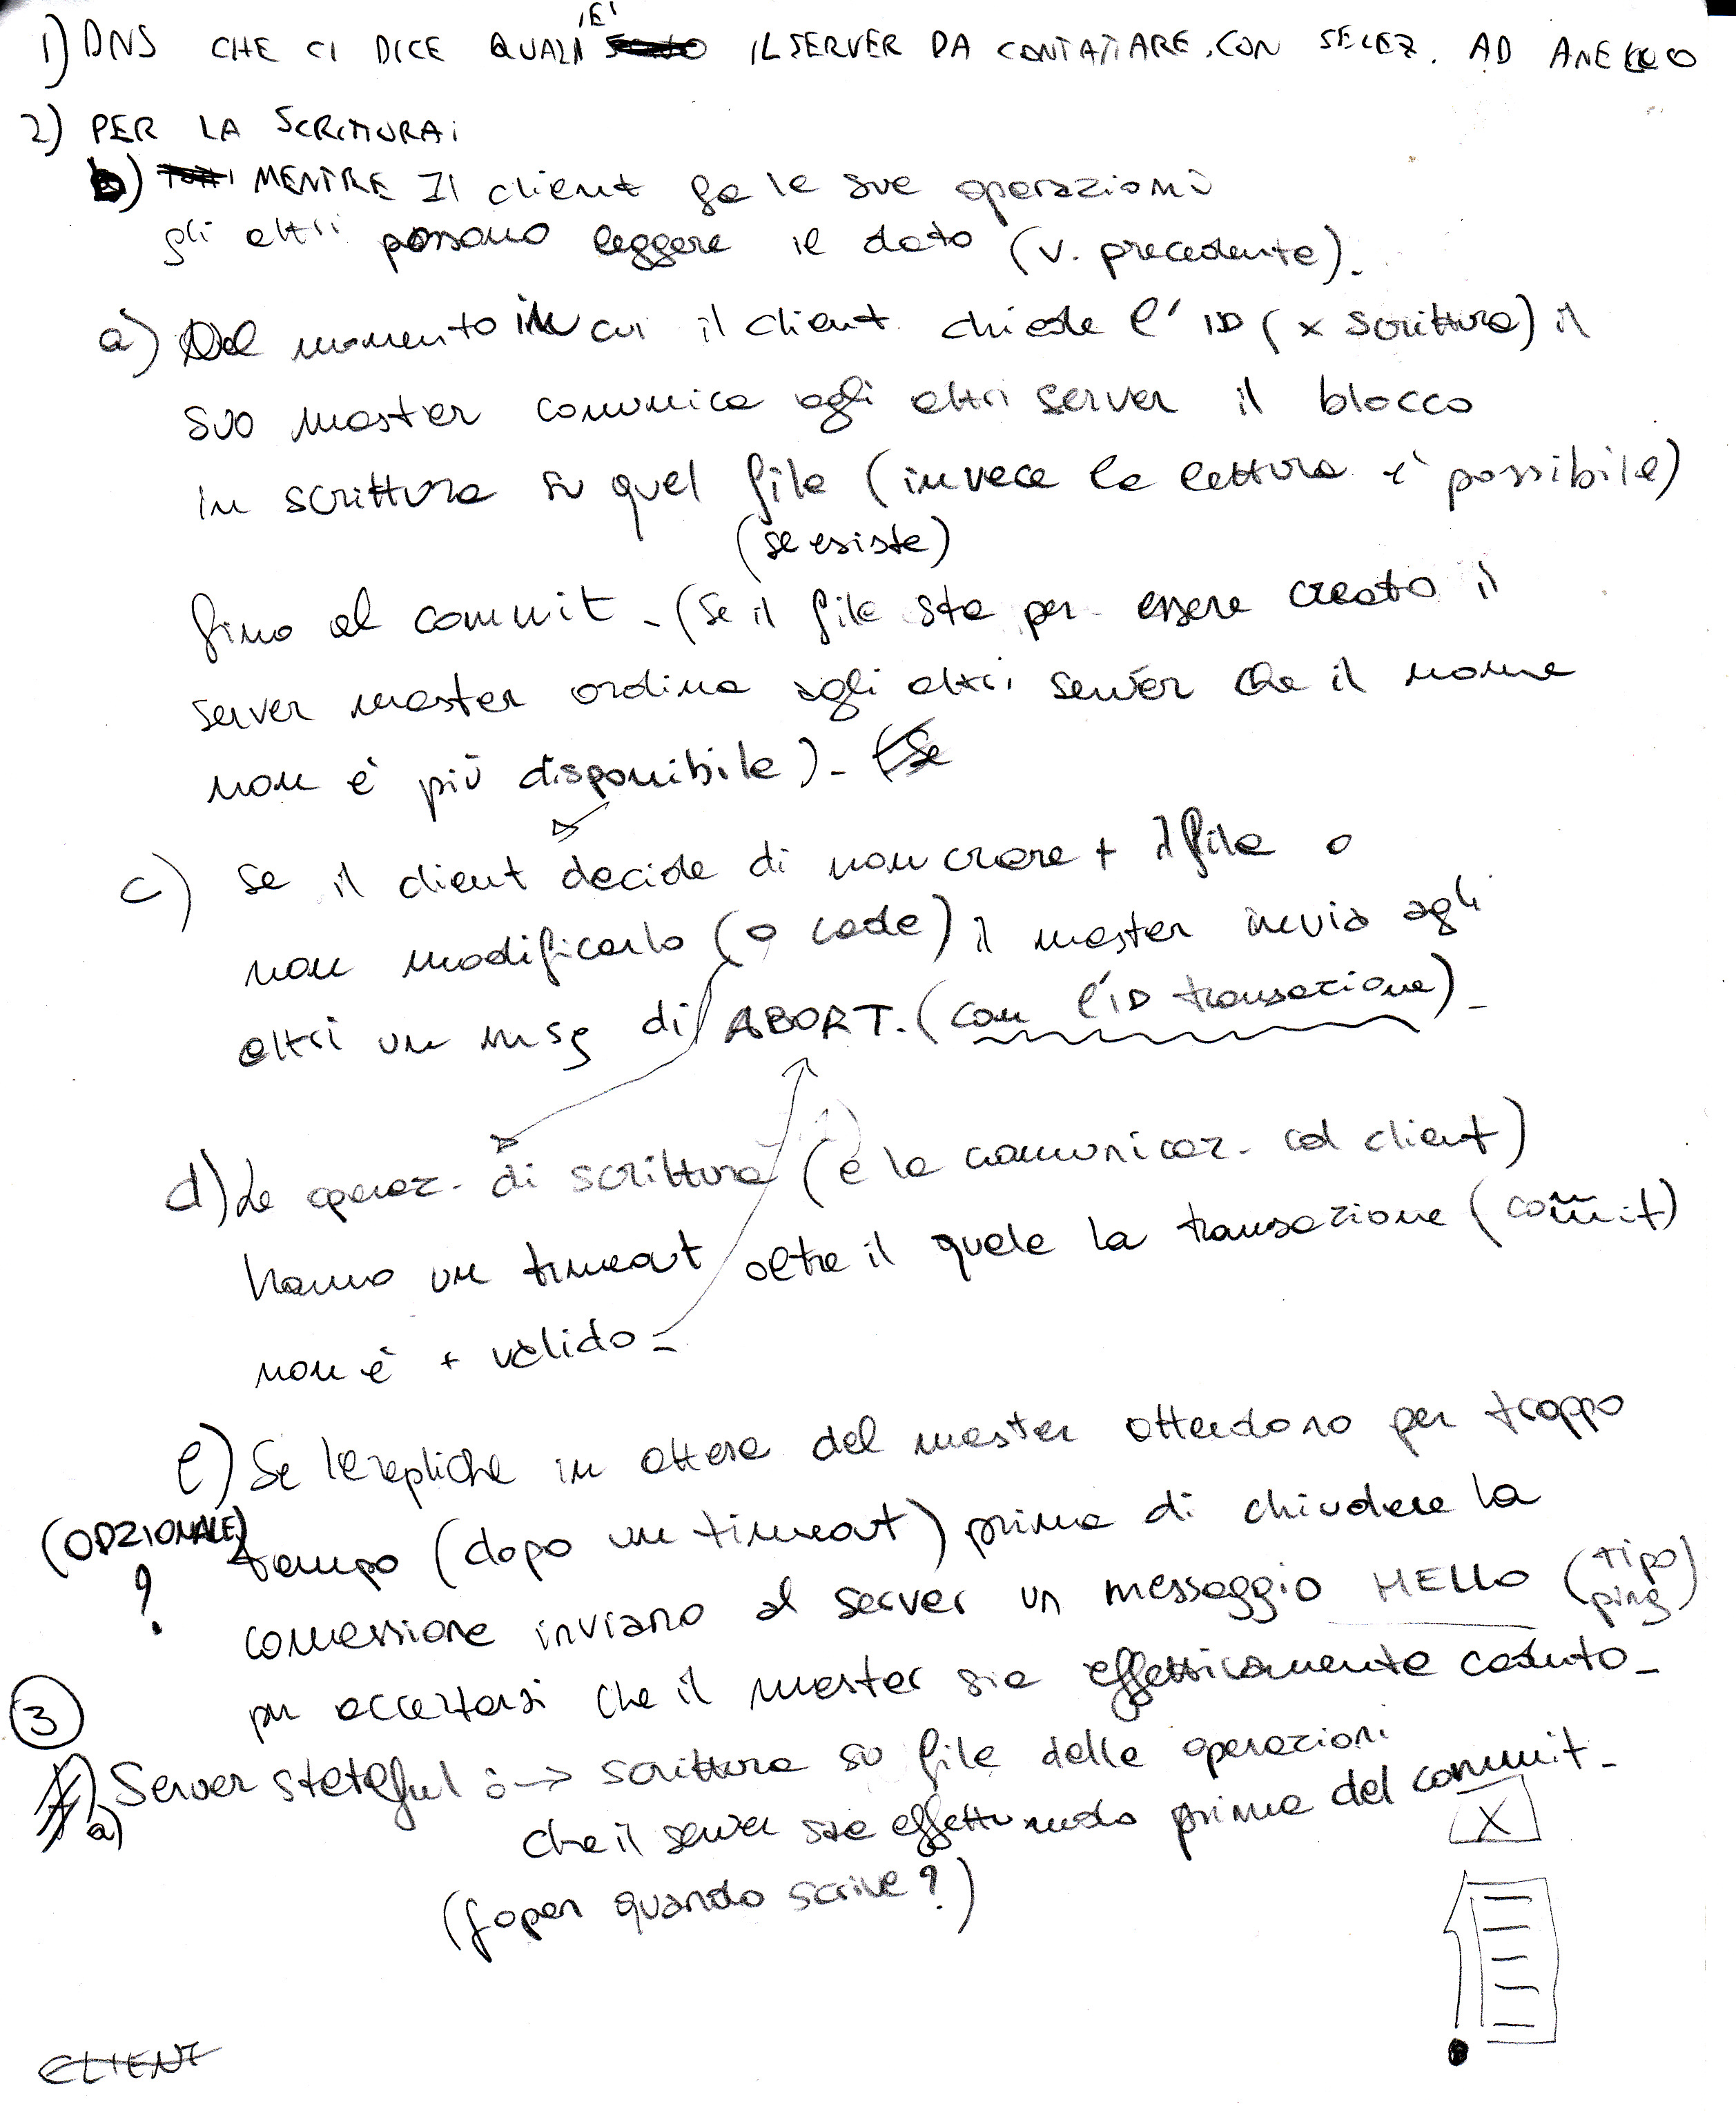 1) DNS CHE CI DICE QUAL'È IL SERVER DA CONTATTARE, CON SELEZ. AD ANELLO
2) PER LA SCRITTURA:
b) MENTRE Il client fa le sue operazioni
gli altri possono leggere il dato (v. precedente).
a) Dal momento in cui il client chiede l'ID (x scrittura) il
suo master comunica agli altri server il blocco
in scrittura su quel file (invece la lettura è possibile)
(se esiste)
fino al commit - (Se il file sta per essere creato il
server master ordina agli altri server che il nome
non è più disponibile) - (Se
c) Se il client decide di non creare + il file o
non modificarlo (o cade) il master invia agli
altri un msg di ABORT. (con l'ID transazione) -
d) Le operaz. di scrittura (e la comunicaz. col client)
hanno un timeout oltre il quale la transazione (commit)
non è + valido -
e) Se le repliche in attesa del master attendono per troppo
(OPZIONALE) tempo (dopo un timeout) prima di chiudere la
? connessione inviano al server un messaggio HELLO (tipo ping)
per accertarsi che il master sia effettivamente caduto -
3
a) Server stateful :-> scrittura su file delle operazioni
che il server sta effettuando prima del commit -
(fopen quando scrive?)
X
CLIENT